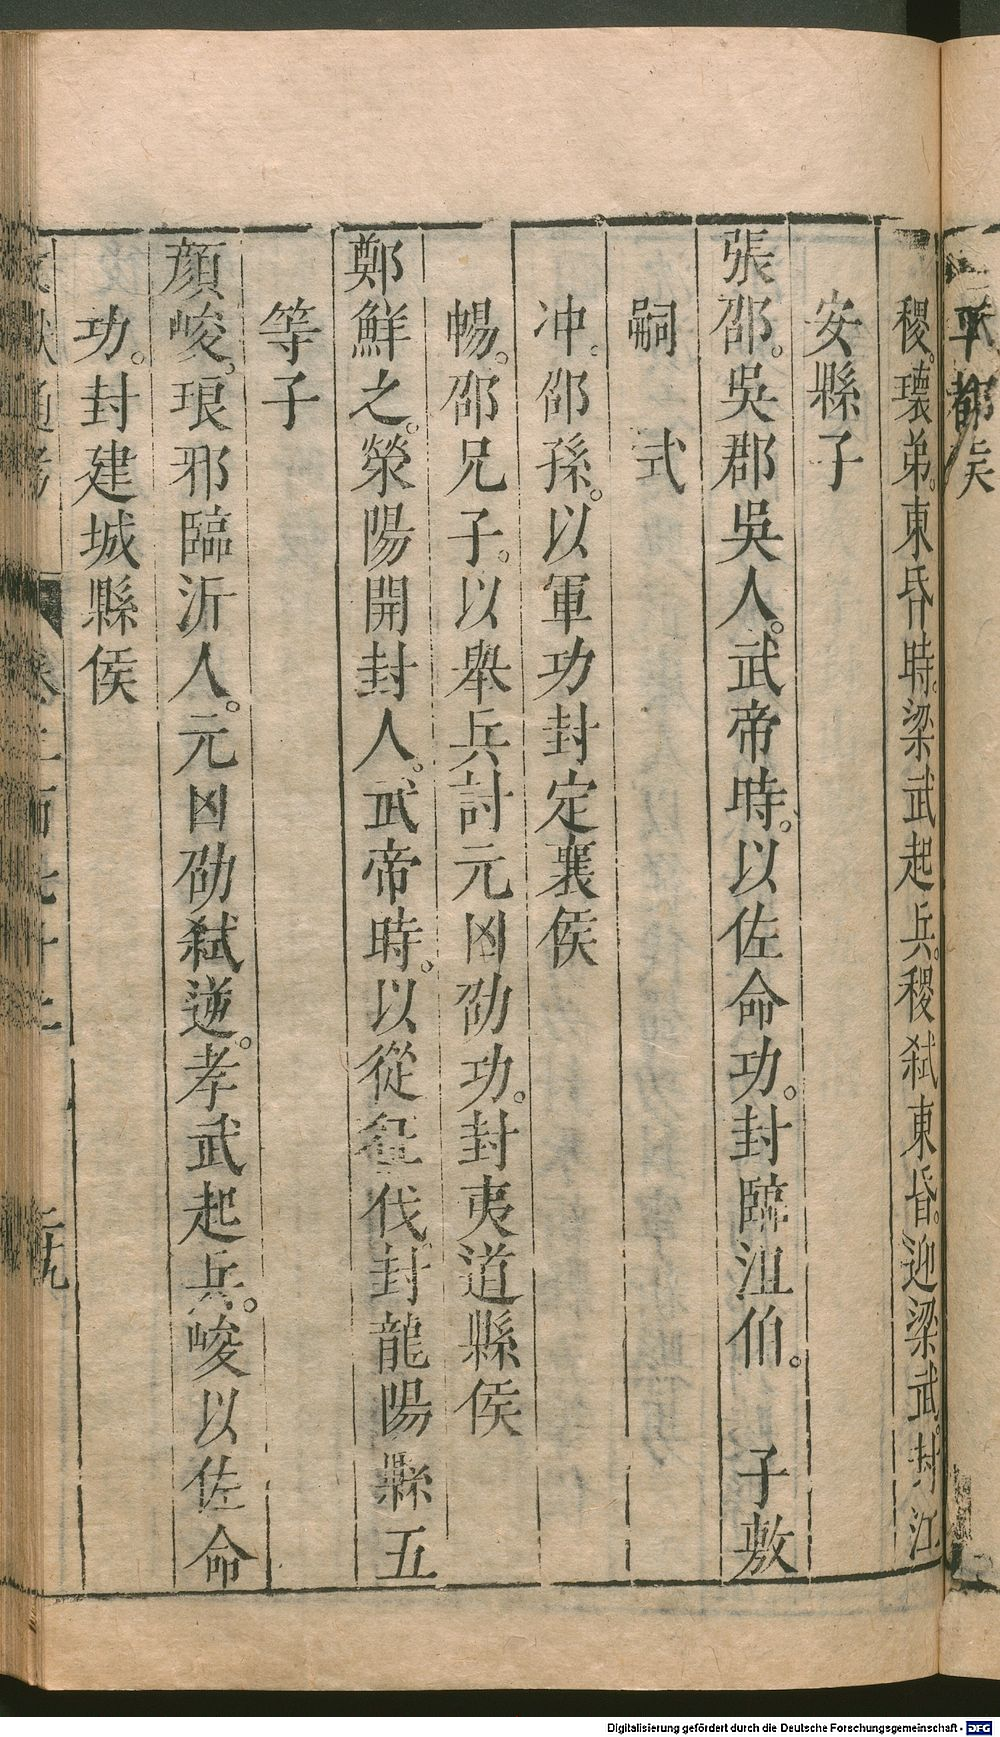 平都侯
稷。瓌弟。東昏時。梁武起兵。稷弑東昏。迎梁武。封江
安縣子
張邵。吳郡吳人。武帝時。以佐命功。封臨沮伯。 子敷
嗣 式
冲。邵孫。以軍功封定襄侯
暢。邵兄子。以舉兵討元凶劭功。封夷道縣侯
鄭鮮之。滎陽開封人。武帝時。以從征伐。封龍陽縣五
等子
顏峻。琅邪臨沂人。元凶劭弑逆。孝武起兵。峻以佐命
功。封建城縣侯
文獻通考 卷二百七十二
Digitalisierung gefördert durch die Deutsche Forschungsgemeinschaft - DFG